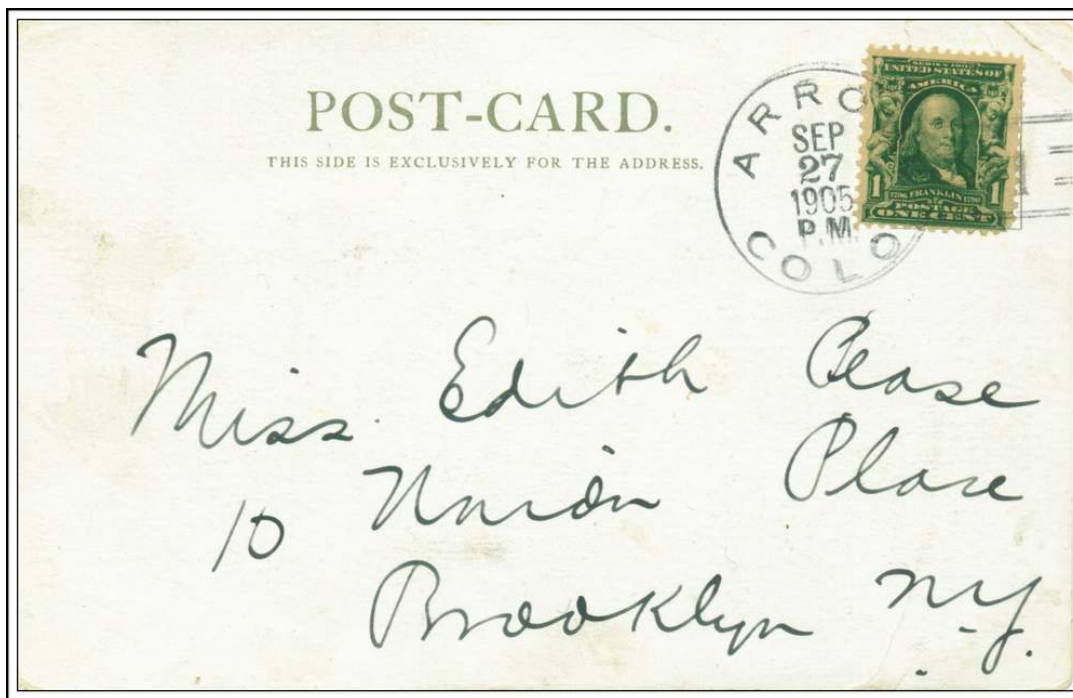 POST-CARD.
THIS SIDE IS EXCLUSIVELY FOR THE ADDRESS.
ARRO
SEP
27
1905
P.M.
COLO
SERIES 1902
UNITED STATES OF
AMERICA
1 1706 FRANKLIN 1790 1
POSTAGE
ONE CENT
Miss. Edith Pease
10 Union Place
Brooklyn N.Y.